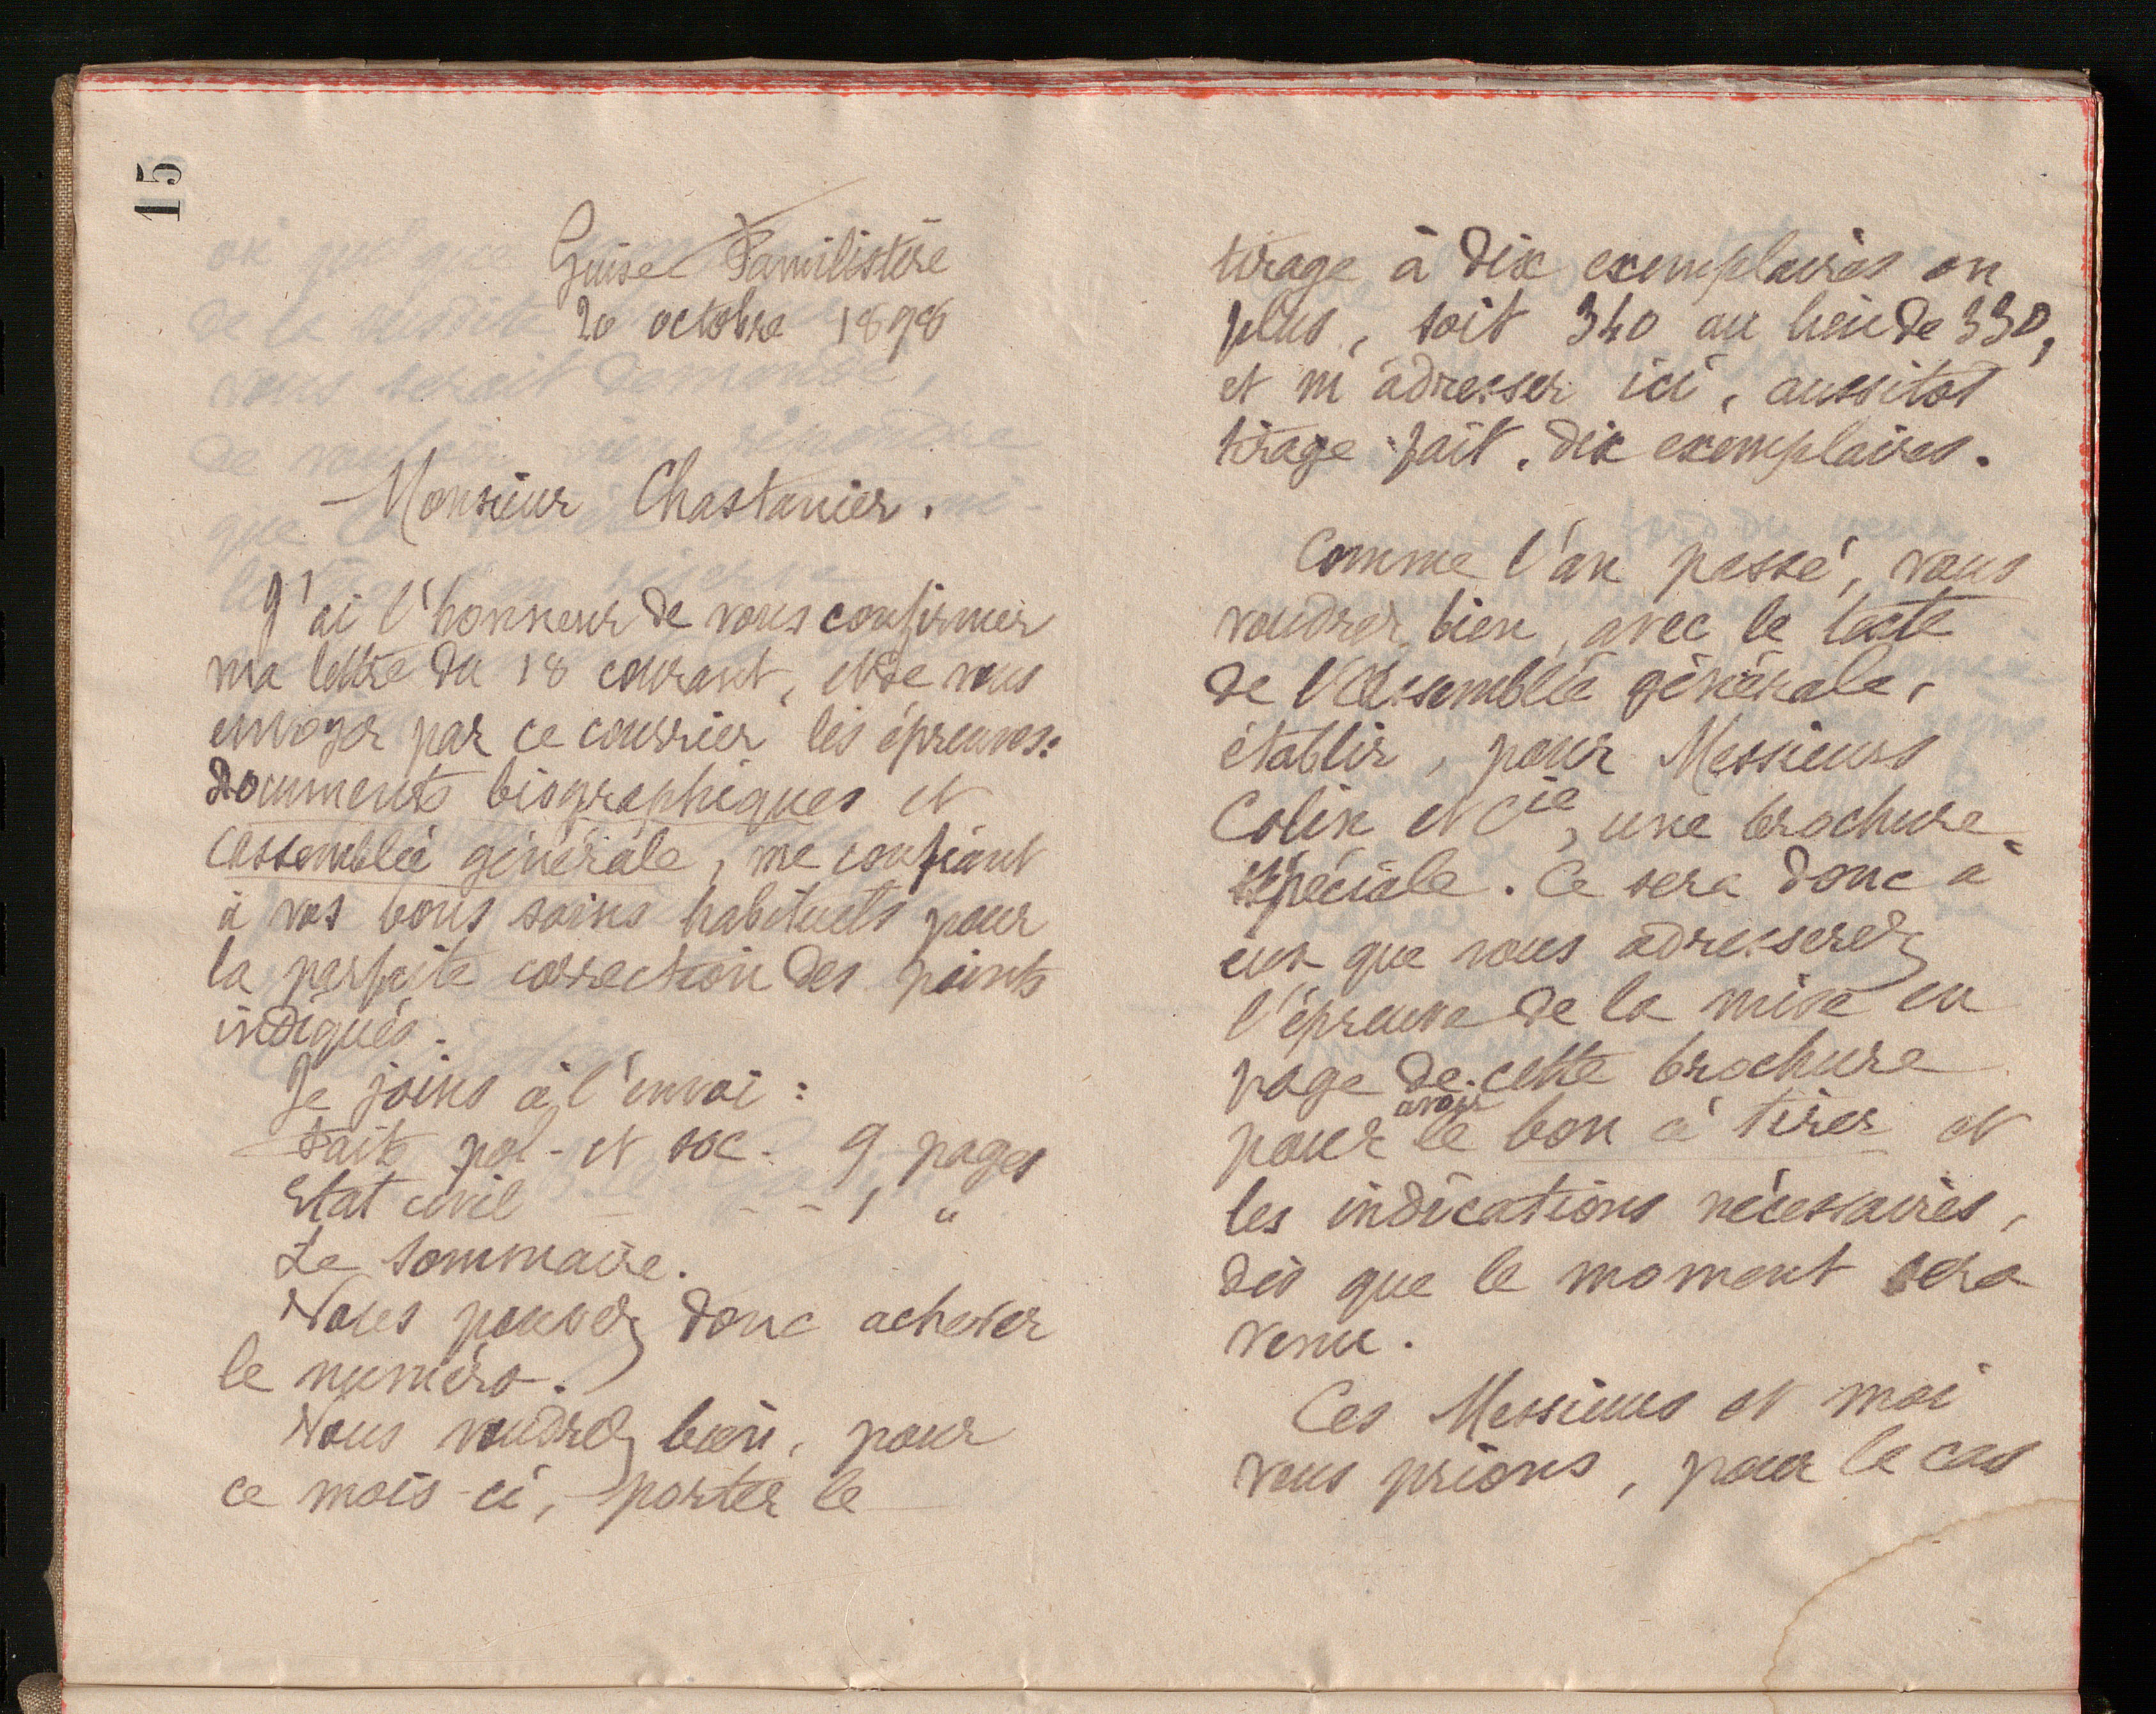 15
Guise Familistère
20 octobre 1898
Monsieur Chastanier.
J'ai l'honneur de vous confirmer
ma lettre du 18 courant, et de vous
envoyer par ce courrier les épreuves:
Documents biographiques et
assemblée générale, me confiant
à vos bons soins habituels pour
la parfaite correction des points
indiqués.
Je joins à l'envoi :
Faits pol- et soc. 9 pages
Etat civil - - - 1 "
Le Sommaire.
Vous pouvez donc achever
le numéro.
Vous voudrez bien, pour
ce mois-ci, porter le
tirage à dix exemplaires en
plus, soit 340 au lieu de 330,
et m'adresser ici, aussitôt
tirage fait, dix exemplaires.
Comme l'an passé, vous
voudrez bien, avec le texte
de l'Assemblée générale,
établir, pour Messieurs
Colin et Cie, une brochure
spéciale. Ce sera donc à
eux que vous adresserez
l'épreuve de la mise en
page de cette brochure
pour avoir le bon à tirer et
les indications nécessaires,
dès que le moment sera
venu.
Ces Messieurs et moi
vous prions, pour le cas